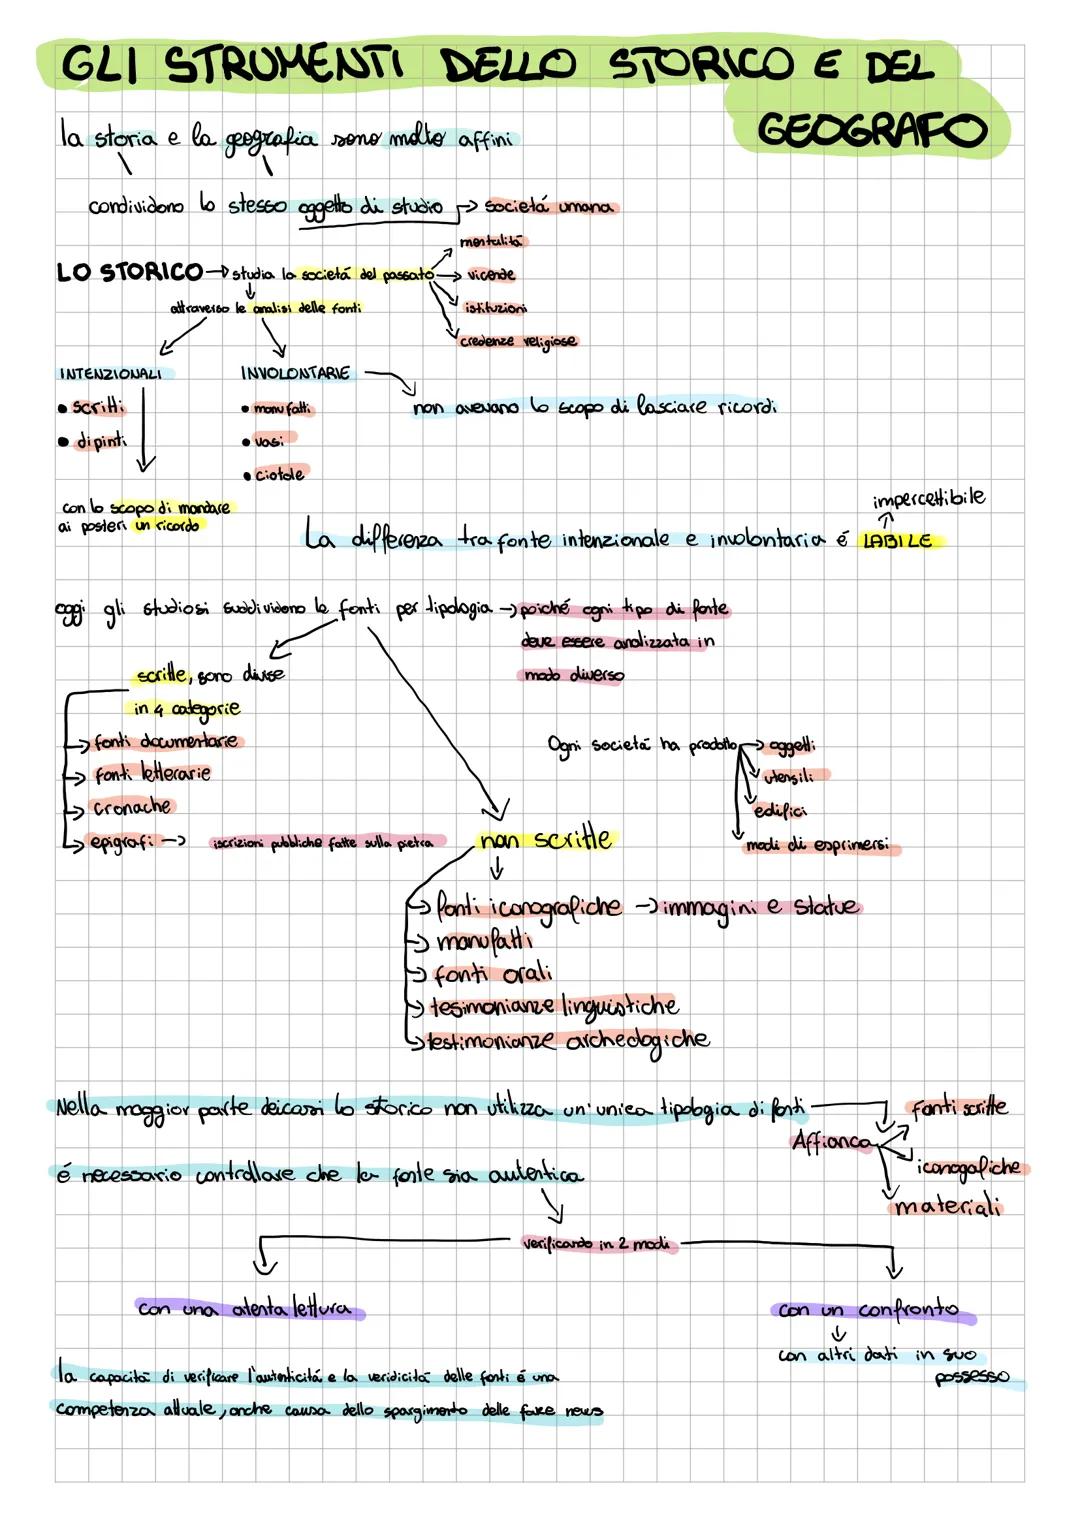 GLI STRUMENTI DELLO STORICO E DEL
GEOGRAFO
la storia e la geografia sono molto affini
condividono lo stesso oggetto di studio → società umana
mentalità
LO STORICO → studia la società del passato → vicende
attraverso le analisi delle fonti
istituzioni
credenze religiose
INTENZIONALI
INVOLONTARIE
• scritti
• manufatti
non avevano lo scopo di lasciare ricordi
• dipinti
• vasi
• ciotole
con lo scopo di mandare
ai posteri un ricordo
impercettibile
La differenza tra fonte intenzionale e involontaria é LABILE
oggi gli studiosi suddividono le fonti per tipologia → poiché ogni tipo di fonte
deve essere analizzata in
modo diverso
scritte, sono divise
in 4 categorie
→ fonti documentarie
→ fonti letterarie
→ cronache
→ epigrafi → iscrizioni pubbliche fatte sulla pietra
Ogni società ha prodotto → oggetti
utensili
edifici
modi di esprimersi
non scritte
→ fonti iconografiche → immagini e statue
→ manufatti
→ fonti orali
→ tesimonianze linguistiche
→ testimonianze archeologiche
Nella maggior parte deicasi lo storico non utilizza un'unica tipologia di fonti
fonti scritte
Affianca
iconogafiche
materiali
é necessario controllare che la fonte sia autentica
verificando in 2 modi
con una atenta lettura
con un confronto
con altri dati in suo
possesso
la capacità di verificare l'autenticitá e la veridicitá delle fonti é una
competenza attuale, anche causa dello spargimento delle fake news